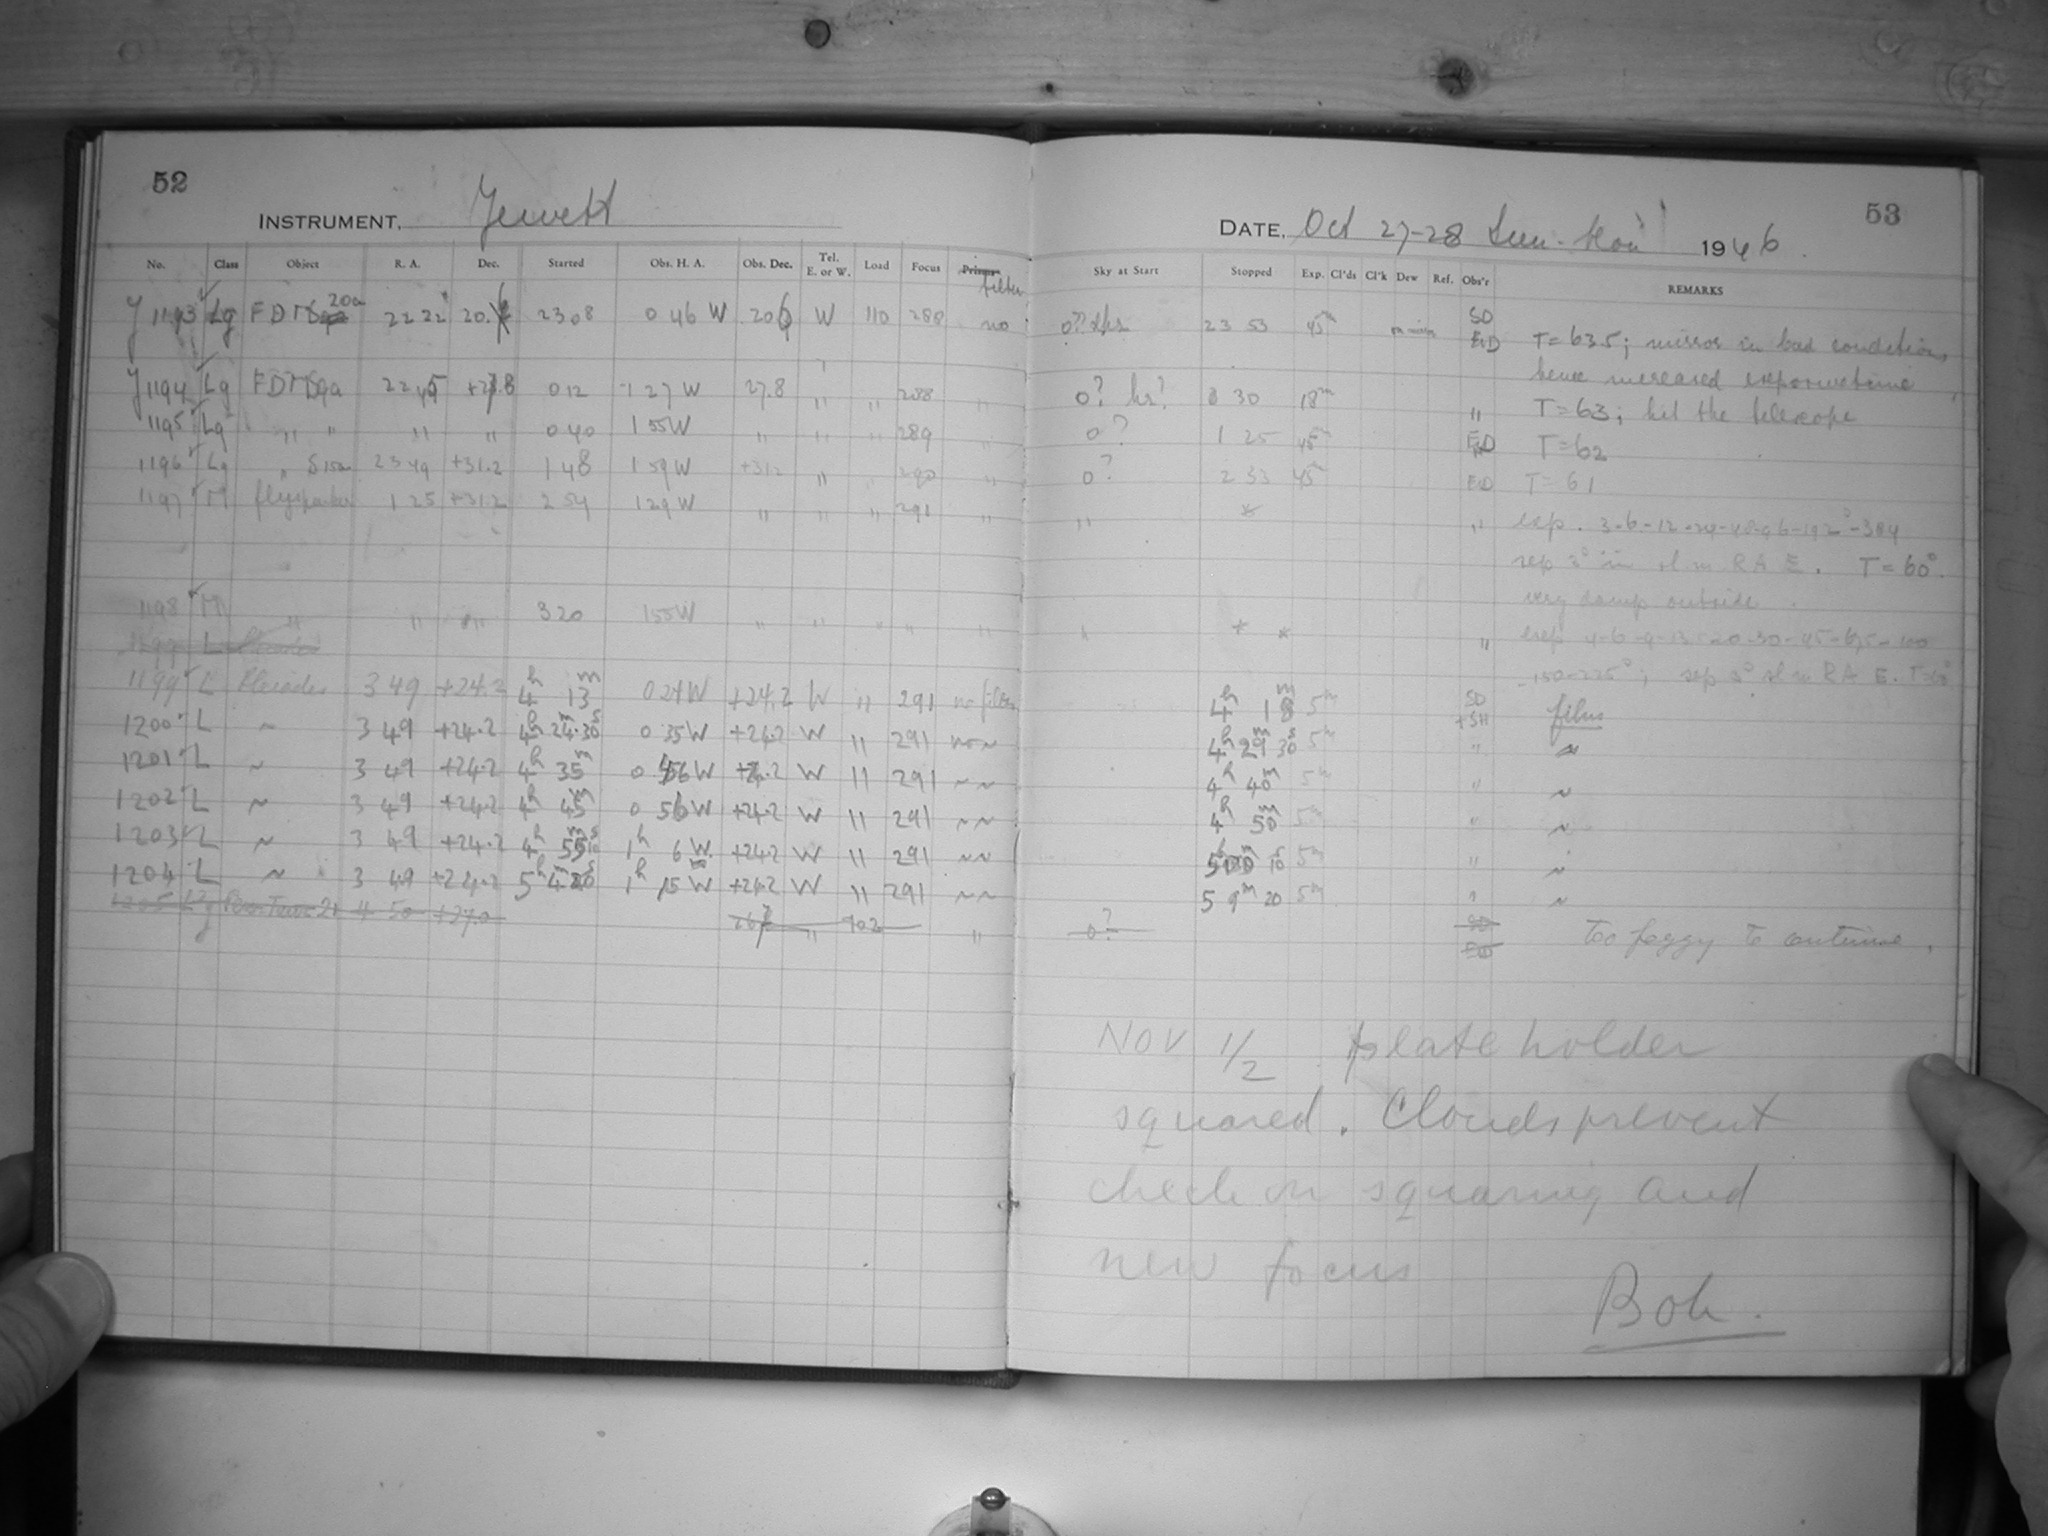 52
INSTRUMENT, Jewett
No. Class Object R. A. Dec. Started Obs. H. A. Obs. Dec. Tel. E. or W. Load Focus filter
J 1193 Lg FDTS 20a 22 22 20. 23 08 0 46 W 20 W 110 288 no
J 1194 Lg FDTS 9a 22 45 +27.8 0 12 1 27 W 27.8 " " 288 "
1195 Lg " " " " 0 40 1 55 W " " " 289 "
1196 Lg " S15a 23 49 +31.2 1 48 1 59 W +31.2 " " 290 "
1197 M 1 25 +31.2 2 54 1 29 W " " " 291 "
1198 M " " " 3 20 1 55 W " " " " "
1199 L Pleiades 3 49 +24.2 4h 13m 0 24 W +24.2 W " 291 no filter
1200 L ~ 3 49 +24.2 4h 24m 30s 0 35 W +24.2 W " 291 no ~
1201 L ~ 3 49 +24.2 4h 35m 0 46 W +24.2 W " 291 ~ ~
1202 L ~ 3 49 +24.2 4h 45m 0 56 W +24.2 W " 291 ~ ~
1203 L ~ 3 49 +24.2 4h 55m 10s 1h 6 W +24.2 W " 291 ~ ~
1204 L ~ 3 49 +24.2 5h 4m 20s 1h 15m W +24.2 W " 291 ~ ~
1205 Lg 4 50 +27.0 " 102 "
53
DATE, Oct 27-28 Sun-Mon 1946.
Sky at Start Stopped Exp. Cl'ds Cl'k Dew Ref. Obs'r REMARKS
0? 23 53 45m SD ED T=63.5; mirror in bad condition,
hence increased exposure time
0? hz? 0 30 18m " T=63; hit the telescope
0? 1 25 45m ED T=62
0? 2 33 45m ED T=61
" * " exp. 3-6-12-24-48-96-192-384
sep 3° in RA E. T=60°.
very damp outside.
" * * " exp 4-6-9-13.5-20-30-45-67.5-100
-150-225s; sep 3° RA E. T=60°
4h 18m 5m SD +SH film
4h 29m 30s 5m " ~
4h 40m 5m " ~
4h 50m 5m " ~
5h 00m 10s 5m " ~
5 9m 20 5m " ~
0? SD ED Too foggy to continue.
NOV 1/2 plate holder
squared. Clouds prevent
check on squaring and
new focus
Bok.